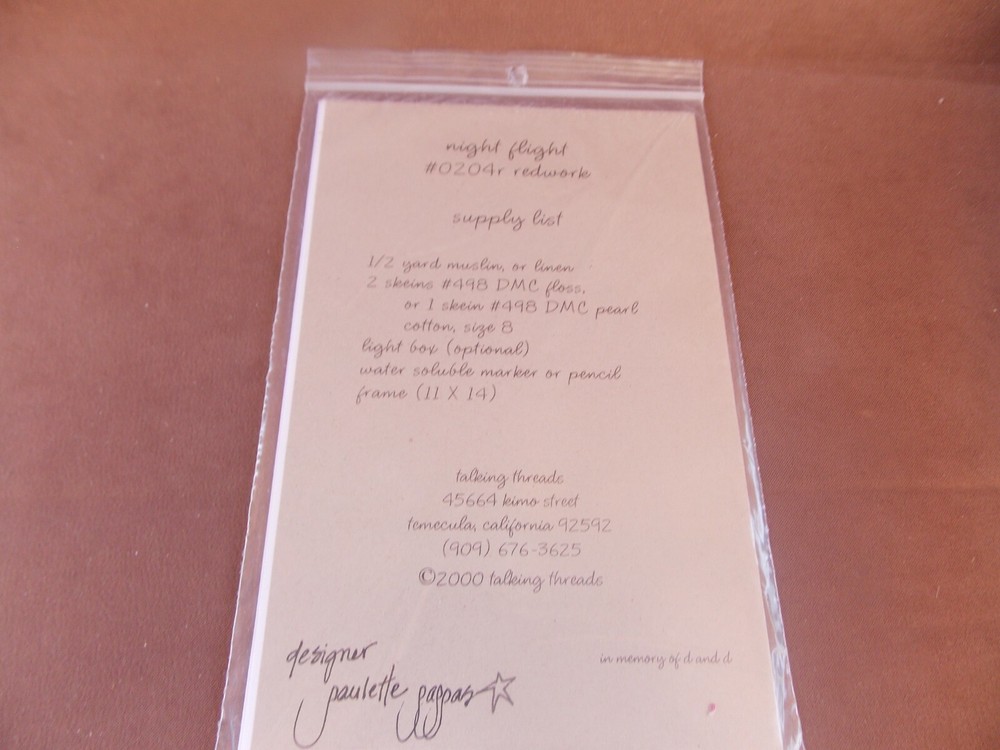 night flight
#0204r redwork
supply list
1/2 yard muslin, or linen
2 skeins #498 DMC floss,
or 1 skein #498 DMC pearl
cotton, size 8
light box (optional)
water soluble marker or pencil
frame (11 X 14)
talking threads
45664 kimo street
temecula, california 92592
(909) 676-3625
©2000 talking threads
designer
in memory of d and d
paulette